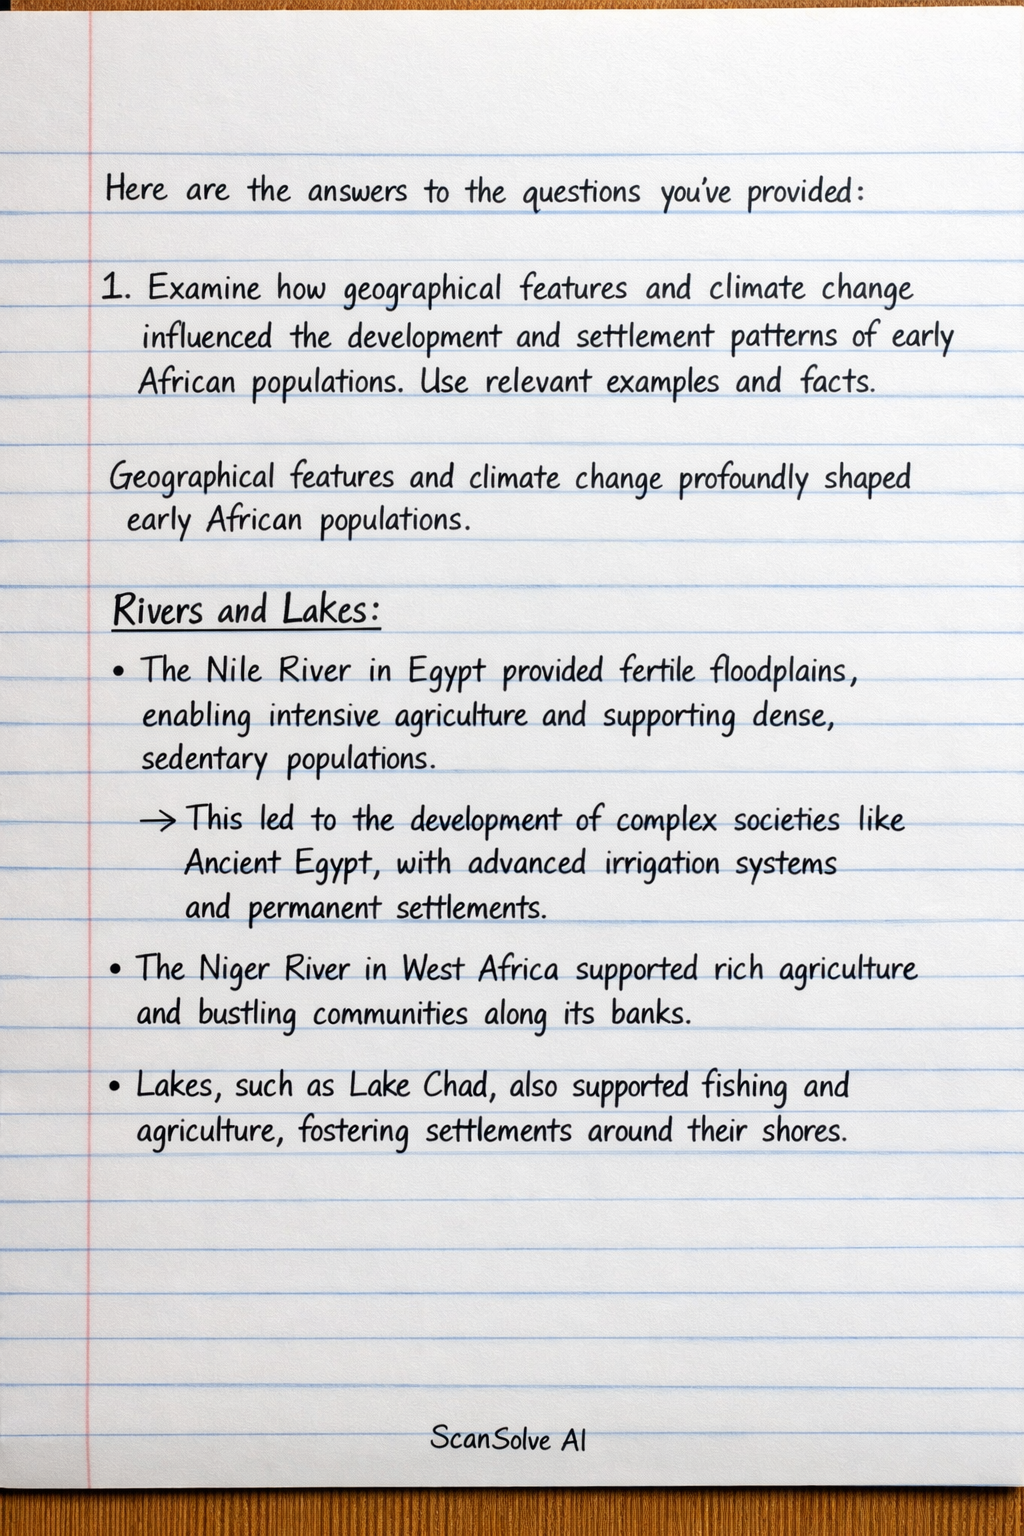 Here are the answers to the questions you've provided:
1. Examine how geographical features and climate change
influenced the development and settlement patterns of early
African populations. Use relevant examples and facts.
Geographical features and climate change profoundly shaped
early African populations.
Rivers and Lakes:
• The Nile River in Egypt provided fertile floodplains,
enabling intensive agriculture and supporting dense,
sedentary populations.
→ This led to the development of complex societies like
Ancient Egypt, with advanced irrigation systems
and permanent settlements.
• The Niger River in West Africa supported rich agriculture
and bustling communities along its banks.
• Lakes, such as Lake Chad, also supported fishing and
agriculture, fostering settlements around their shores.
ScanSolve AI